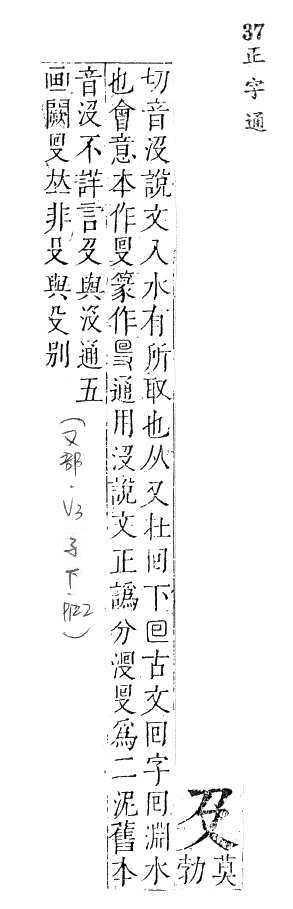 37 正字通
𠬛
莫勃
切音沒說文入水有所取也从又在囘下囘古文回字囘淵水
也會意本作𠬸篆作通用沒說文正譌分漫𠬸爲二泥舊本
音沒不詳言𠬛與沒通五
画闕𠬸𠀤非與殳别
(又部.V3 子下.P22)